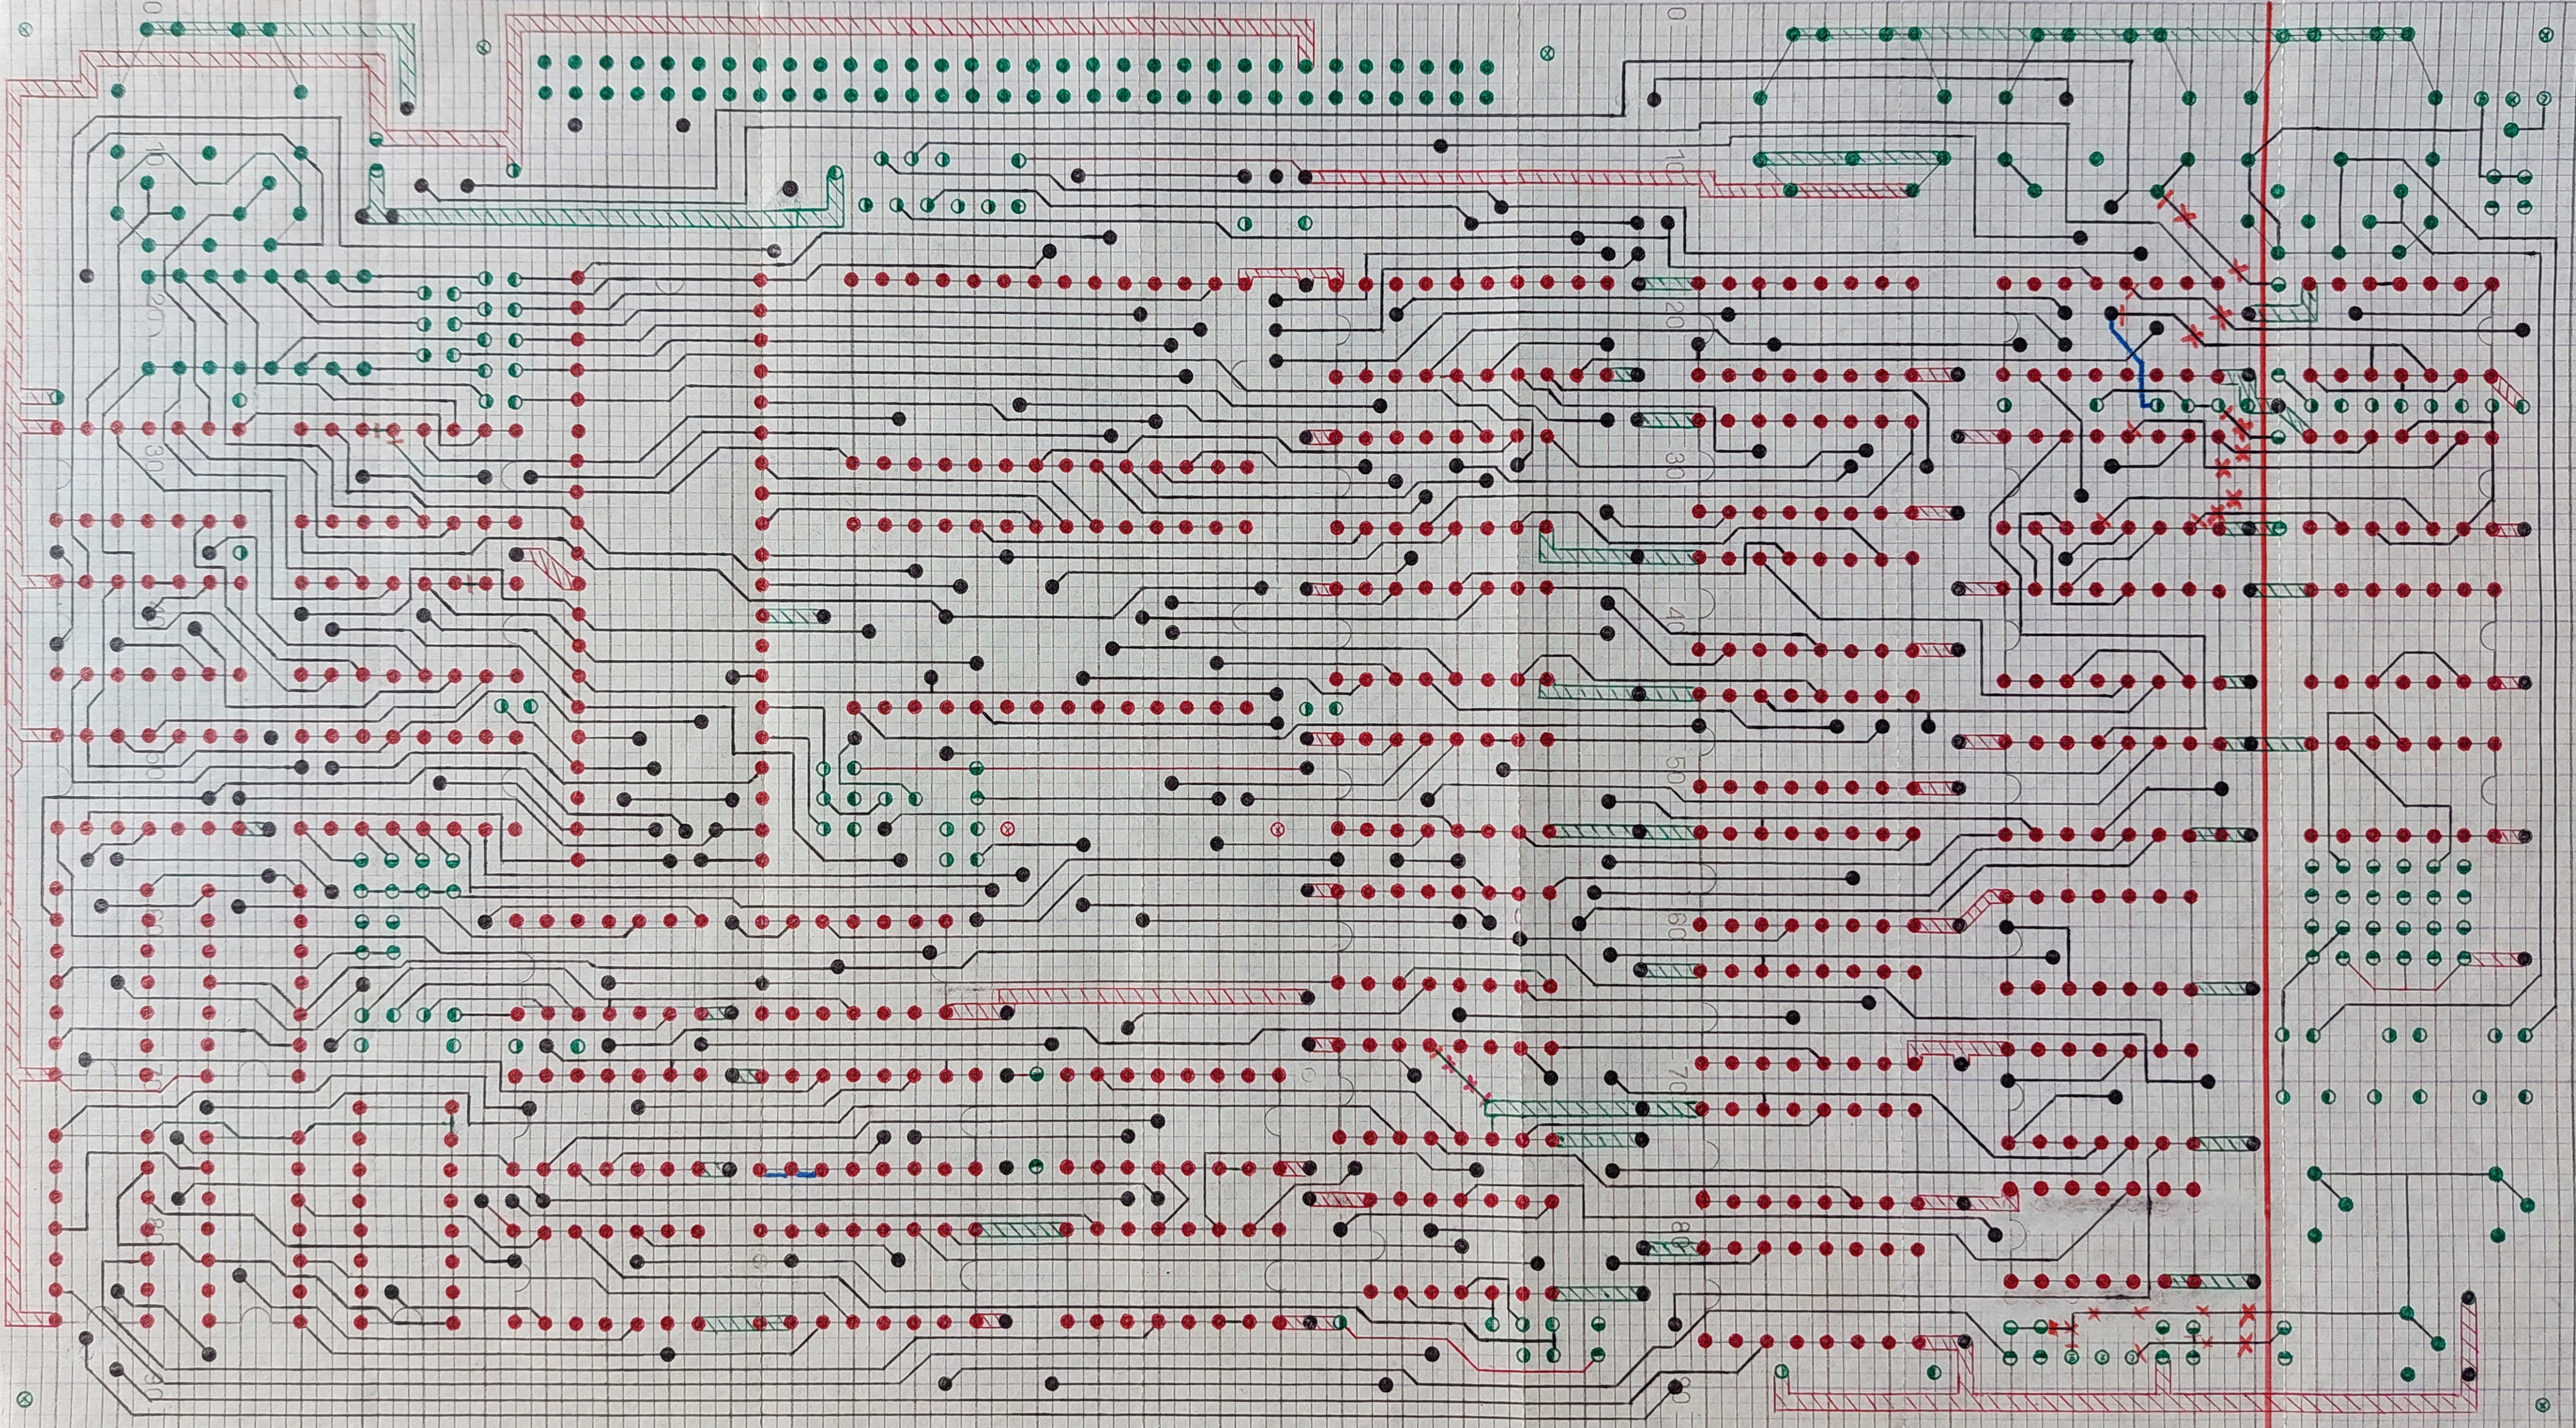 0
0
10
10
20
20
30
30
40
50
50
60
60
70
70
80
80
90
90